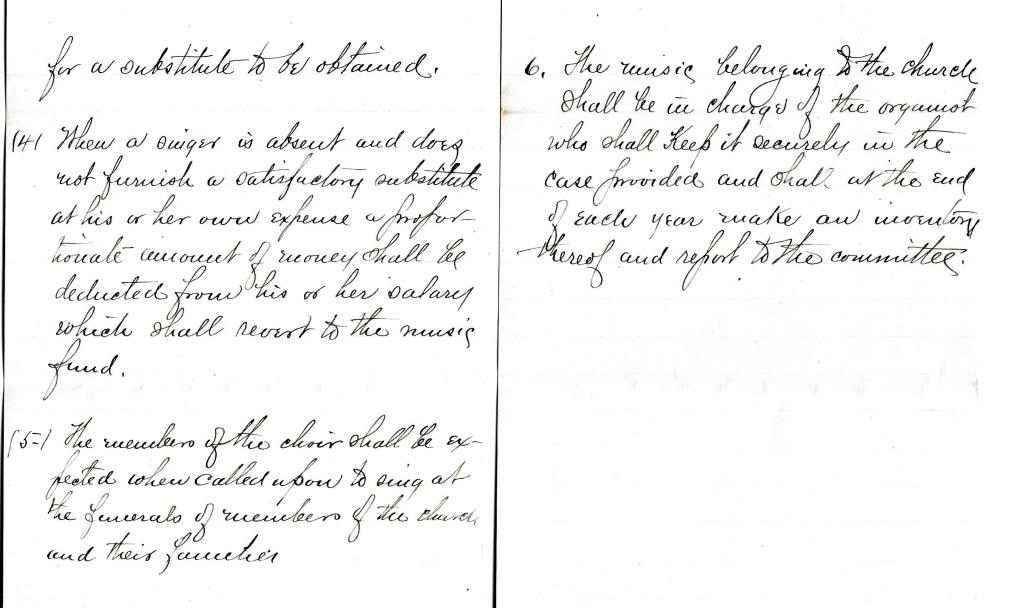 for a substitute to be obtained.
(4) When a singer is absent and does
not furnish a satisfactory substitute
at his or her own expense a propor-
tionate amount of money shall be
deducted from his or her salary
which shall revert to the music
fund.
(5) The members of the choir shall be ex-
pected when called upon to sing at
the funerals of members of the church
and their families
6. The music belonging to the church
shall be in charge of the organist
who shall Keep it securely in the
case provided and shall at the end
of each year make an inventory
thereof and report to the committee.